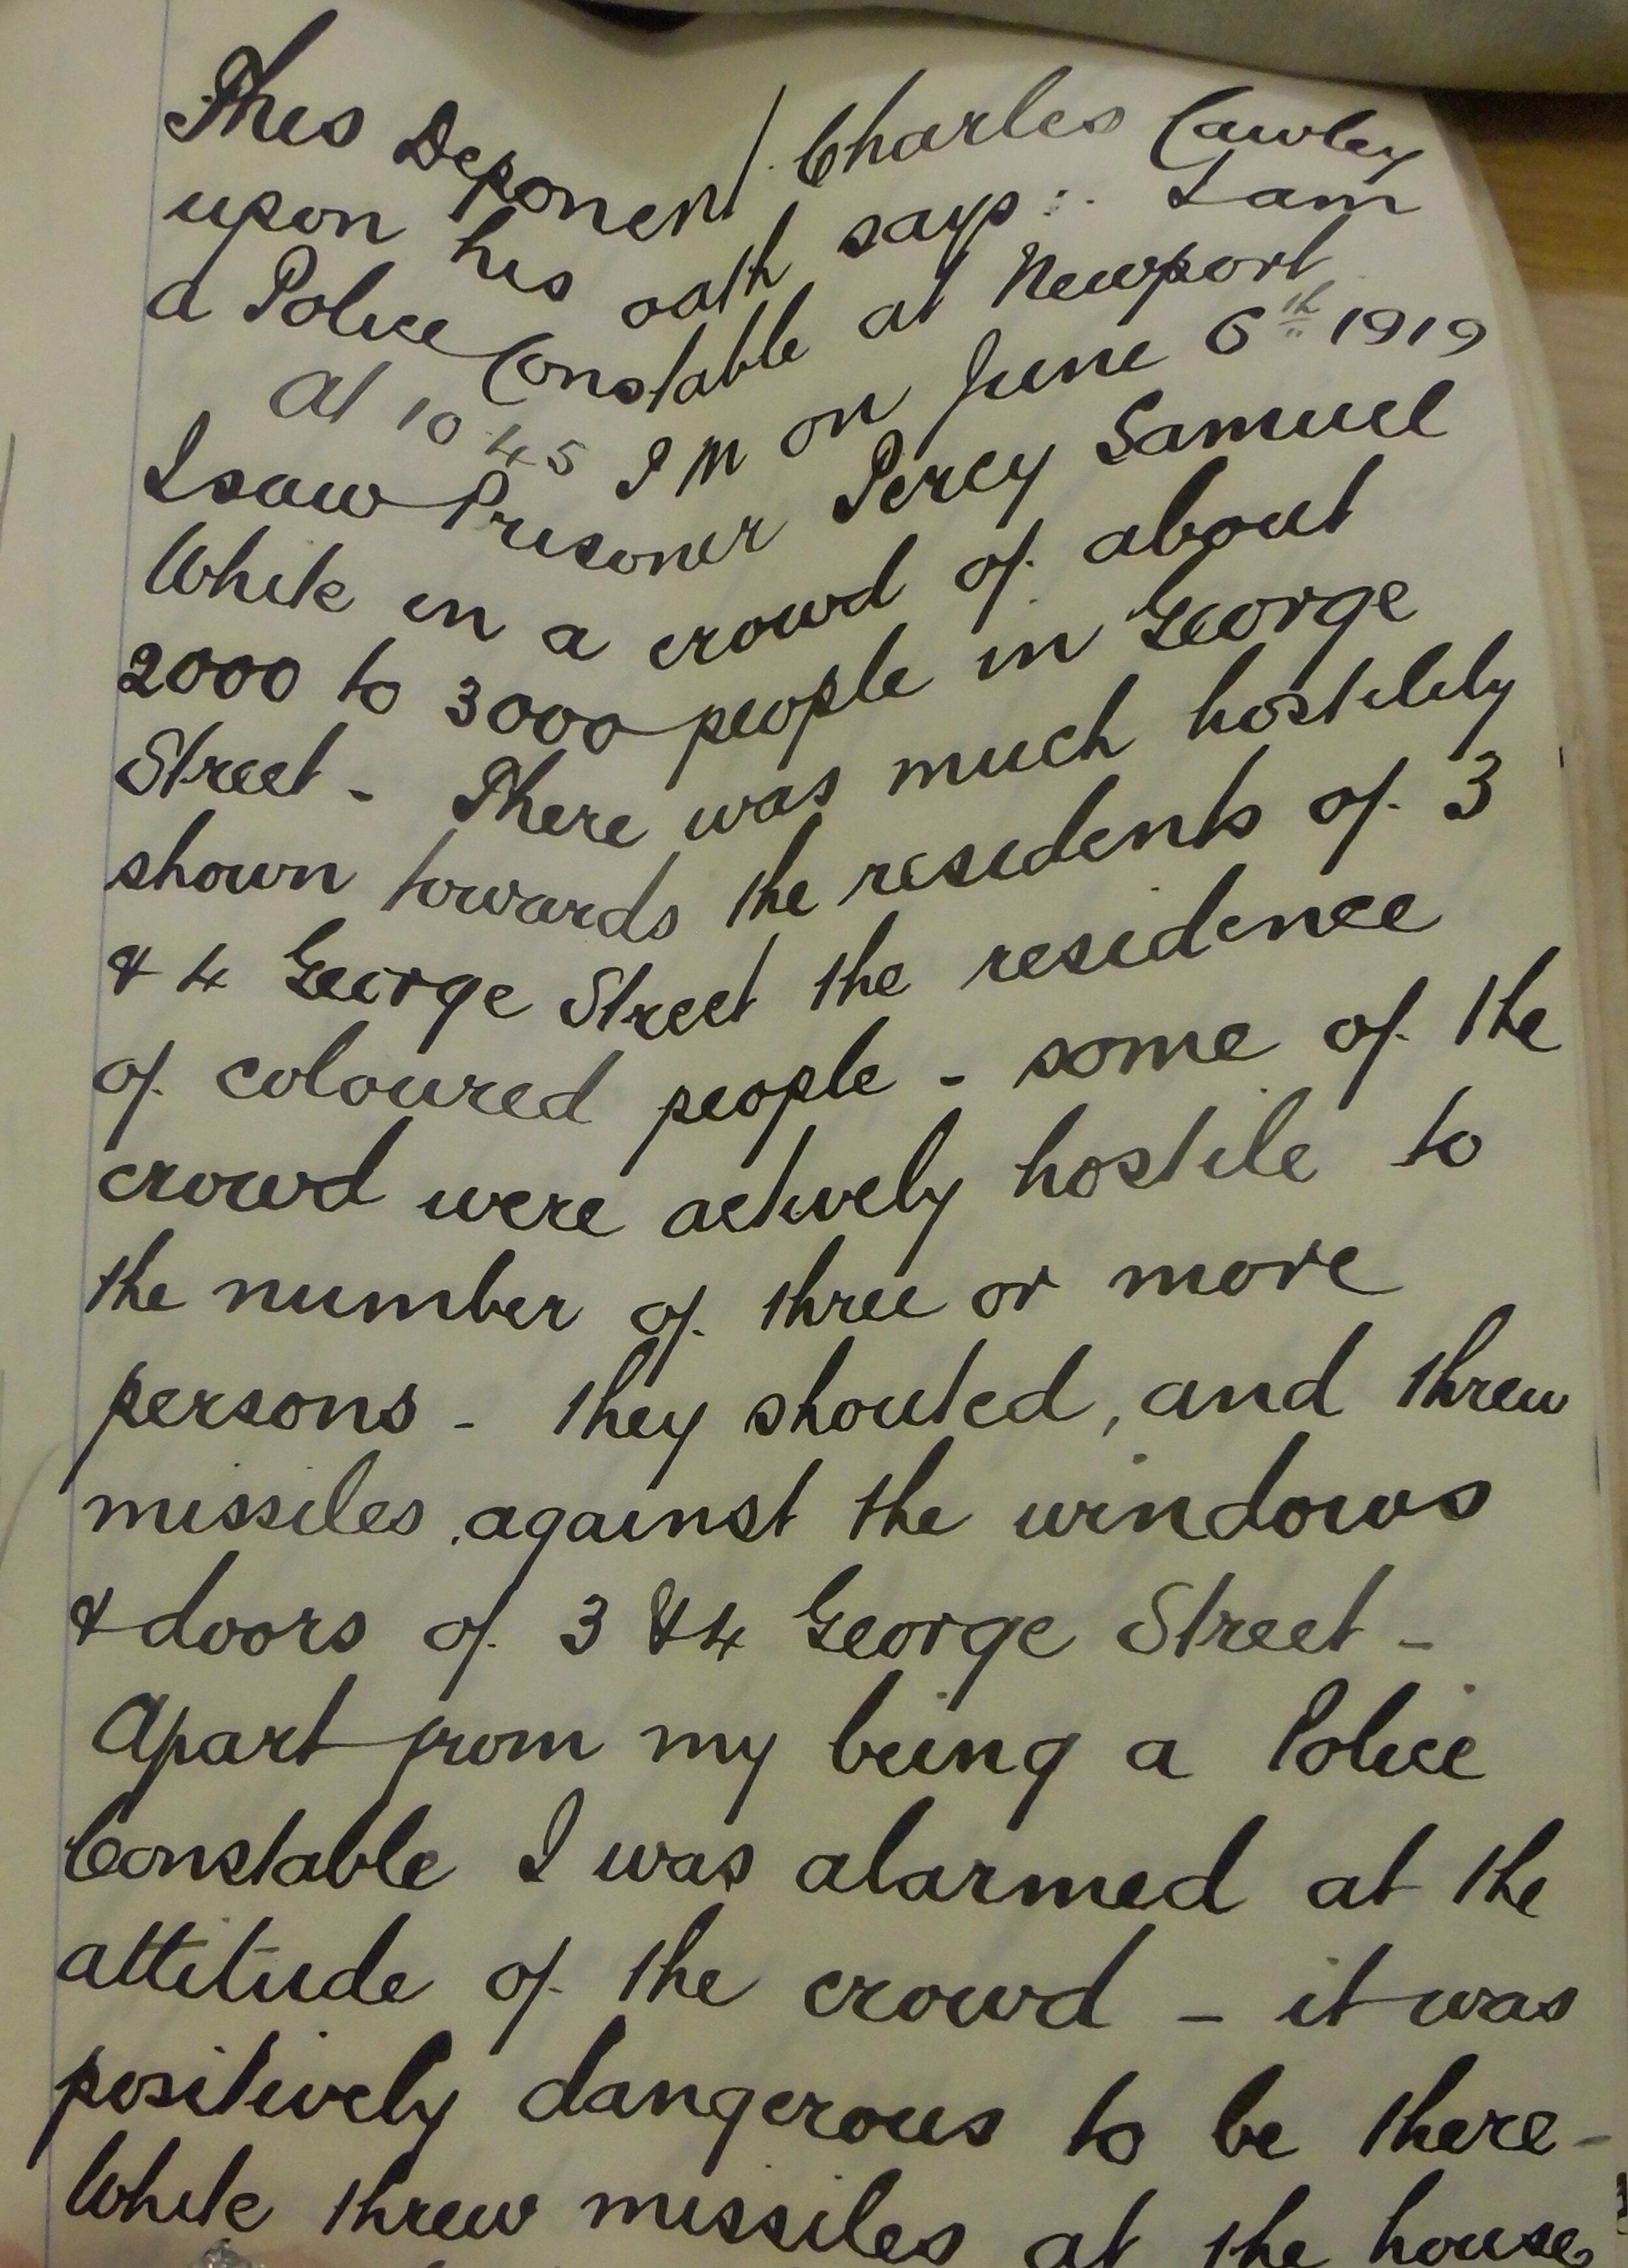 This Deponent Charles Cawley
upon his oath says :- I am
a Police Constable at Newport
At 10 45 PM on June 6th 1919
I saw Prisoner Percy Samuel
White in a crowd of about
2000 to 3000 people in George
Street - There was much hostility
shown towards the residents of 3
& 4 George Street the residence
of coloured people - some of the
crowd were actively hostile to
the number of three or more
persons - they shouted, and threw
missiles against the windows
& doors of 3 & 4 George Street -
Apart from my being a Police
Constable I was alarmed at the
attitude of the crowd - it was
positively dangerous to be there -
White threw missiles at the house